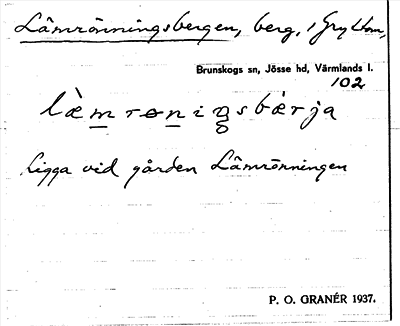 Lämrönningsbergen, berg, i Gryttom,
Brunskogs sn, Jösse hd, Värmlands l.
102
læ̀mrøniŋsbæ̀rja
Ligga vid gården Lämrönningen
P. O. GRANÉR 1937.